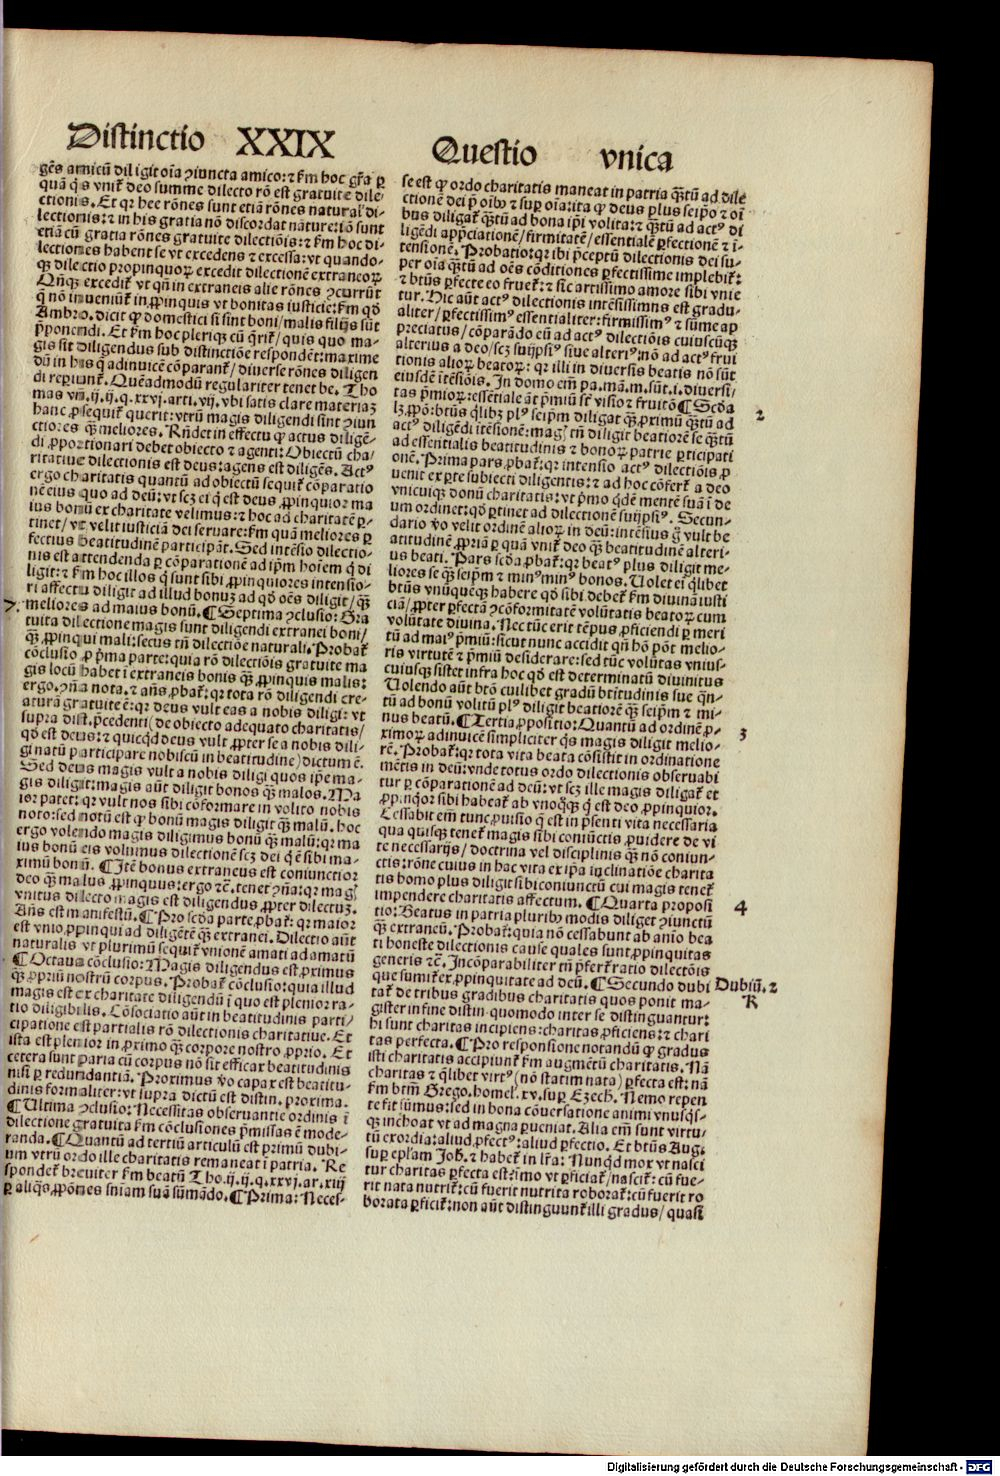 Distinctio XXIX
Questio vnica
gẽs amicũ diligit oĩa ↄiuncta amico: ⁊ ẜm hoc gr̃a ꝑ
quã q̇s vnit᷑ deo summe dilecto rõ est gratuite dile/
ctionis. Et qꝛ hee rõnes sunt etiã rõnes natural' di-
lectionis: ⁊ in his gratia nõ discordat nature: iõ sunt
etiã cũ gratia rõnes gratuite dilectiõis: ⁊ ẜm hoc di-
lectiones habent se vt excedens ⁊ excessa: vt quando-
qꝫ dilectio propinquoꝝ excedit dilectionẽ extraneoꝝ
Qñqꝫ excedit᷑ vt qñ in extraneis alie rõnes ↄcurrũt
q̃ nõ inueniũt᷑ in ꝓpinquis vt bonitas iusticie: ẜm qđ
Ambro. dicit ꝙ domestici si sint boni/malis filijs sũt
p̃ponendi. Et ẜm hoc pleriqꝫ cũ q̃rit᷑/quis quo ma-
gis sit diligendus sub distinctiõe respondẽt: maxime
dũ in his q̃ adinuicẽ cõparant᷑/diuerse rõnes diligen
di reperiunt᷑. Quẽadmodũ regulariter tenet be. Tho
mas vbi .ij.ij.q.xxvj.arti.vij. vbi satis clare materiaꝫ
hanc ꝓsequit᷑ querit: vtrũ magis diligendi sint ↄiun
ctiores qꝫ̃ meliores. Rñdet in effectu ꝙ actus diligẽ-
di ꝓportionari debet obiecto ⁊ agenti: Obiectũ cha/
ritatiue dilectionis est deus: agens est diligẽs. Actꝰ
ergo charitatis quantũ ad obiectũ sequit᷑ cõparatio
nẽ eius quo ad deũ: vt scꝫ ei q̇ est deus ꝓpinquior ma
ius bonũ ex charitate velimus: ⁊ hoc ad charitatẽ ꝑ-
tinet/vt velit iusticiã dei seruare: ẜm quã meliores ꝑ
fectius beatitudinẽ participãt. Sed intẽsio dilectio-
nis est attendenda ꝑ cõparationẽ ad ip̃m hoiem q̇ di
ligit: ⁊ ẜm hoc illos q̇ sunt sibi ꝓpinquiores intensio-
ri affectu diligit ad illud bonuꝫ ad qđ oẽs diligit/qꝫ̃
7. meliores ad maius bonũ. ¶Septima ↄclusio: Gra
tuita dilectione magis sunt diligendi extranei boni/
qꝫ̃ ꝓpinqui mali: secus tñ dilectiõe naturali. Probat᷑
cõclusio ꝓ p̃ma parte: quia rõ dilectiõis gratuite ma
gis locũ habet ĩ extraneis bonis qꝫ̃ ꝓpinquis malis:
ergo. ↄñа nota. ⁊ añs ꝓbat᷑: qꝛ tota rõ diligendi cre-
aturã gratuite ẽ: qꝛ deus vult eas a nobis diligi: vt
supra dist. p̃cedenti (de obiecto adequato charitatis/
qđ est deus: ⁊ quicqđ deus vult ꝓpter se a nobis dili-
gi natũ participare nobiscũ in beatitudine) dictum ẽ.
Sed deus magis vult a nobis diligi quos ip̃e ma-
gis diligit: magis aũt diligit bonos qꝫ̃ malos. Ma
ior patet: qꝛ vult nos sibi cõformare in volito nobis
noto: sed notũ est ꝙ bonũ magis diligit qꝫ̃ malũ. hoc
ergo volendo magis diligimus bonũ qꝫ̃ malũ: qꝛ ma
ius bonũ eis volumus dilectionẽ scꝫ dei q̃ ẽ sibi ma-
ximũ bonũ. ¶Itẽ bonus extraneus est coniunctior
deo qꝫ̃ malus ꝓpinquus: ergo ⁊c̃. tenet ↄña: qꝛ magꝭ
vnitus dilecto magis est diligendus ꝓpter dilectuꝫ.
Añs est manifestũ. ¶Pro scđa parte ꝓbat᷑: qꝛ maior
est vnio ꝓpinqui ad diligẽtẽ qꝫ̃ extranei. Dilectio aũt
naturalis vt plurimũ sequit᷑ vnionẽ amati ad amatũ
¶Octaua cõclusio: Magis diligendus est ꝓximus
qꝫ̃ ꝓpriũ nostrũ corpus. Probat᷑ cõclusio: quia illud
magis est ex charitate diligendũ ĩ quo est plenior ra-
tio diligibilis. Cõsociatio aũt in beatitudinis parti/
cipatione est partialis rõ dilectionis charitatiue. Et
ista est plenior in ꝓximo qꝫ̃ corpore nostro ꝓprio. Et
cetera sunt paria cũ corpus nõ sit efficax beatitudinis
nisi ꝑ redundantiã. Proximus v̊o capax est beatitu-
dinis formaliter: vt supra dictũ est distin. proxima.
¶Ultima ↄclusio: Necessitas obseruantie ordinis ĩ
dilectione gratuita ẜm cõclusiones p̃missas ẽ mode-
randa. ¶Quantũ ad tertiũ articulũ est primũ dubi-
um vtrũ ordo ille charitatis remaneat ĩ patria. Re
spondet᷑ breuiter ẜm beatũ Tho.ij.ij.q.xxvj.ar.xiij
ꝑ aliq̃s ꝓpõnes sniam suã sũmãdo. ¶Prima: Neces-
se est ꝙ ordo charitatis maneat in patria qꝫ̃tũ ad dile
ctionẽ dei p̃ oĩbꝰ ⁊ suꝑ oĩa: ita ꝙ deus plus seip̃o ⁊ oĩ
bus diligat᷑ qꝫ̃tũ ad bona ip̃i volita: ⁊ qꝫ̃tũ ad actꝰ di
ligẽdi app̃ciationẽ/firmitatẽ/essentialẽ ꝑfectionẽ ⁊ ĩ-
tensionẽ. Probatio: qꝛ ibi p̃ceptũ dilectionis dei su-
per oĩa qꝫ̃tũ ad oẽs cõditiones ꝑfectissime implebit᷑:
⁊ btũs ꝑfecte eo fruet᷑: ⁊ sic artissimo amore sibi vnie
tur. Hic aũt actꝰ dilectionis intẽsissimꝰ est gradu-
aliter/ꝑfectissimꝰ essentialiter: firmissimꝰ ⁊ sũme ap
preciatus/cõparãdo eũ ad actꝰ dilectiõis cuiuscũqꝫ
alterius a deo/scꝫ suijpsiꝰ siue alteriꝰ: nõ ad actꝰ frui
tionis alioꝝ beatoꝝ: qꝛ illi in diuersis beatis nõ sũt
eiusdẽ itẽsiõis. In domo em̃ pa. mã.m.sũt.i. diuersi/
tas p̃mioꝝ: essentiale aũt p̃miũ est visio ⁊ fruitio ¶Scđa 2
ꝓpõ: btũs q̃libꝫ plꝰ seip̃m diligat qꝫ̃ ꝓximũ qꝫ̃tũ ad
actꝰ diligẽdi itẽsionẽ: magꝭ tñ diligit beatiorẽ se qꝫ̃tũ
ad essentialis beatitudinis ⁊ bonoꝝ patrie ꝑticipati
onẽ. Prima pars ꝓbat᷑: qꝛ intensio actꝰ dilectiõis ꝓ
uenit ex ꝑte subiecti diligentis: ⁊ ad hoc cõfert᷑ a deo
vnicuiqꝫ donũ charitatis: vt p̃mo q̇dẽ mentẽ suã ĩ de
um ordinet: qđ ꝑtinet ad dilectionẽ suijpsiꝰ. Secun-
dario v̊o velit ordinẽ alioꝝ in deũ: intẽsius g̊ vult be
atitudinẽ ꝓpriã ꝑ quã vnit᷑ deo qꝫ̃ beatitudinẽ alteri-
us beati. Pars scđa ꝓbat᷑: qꝛ beatꝰ plus diligit me-
liores se qꝫ̃ seip̃m ⁊ minꝰ minꝰ bonos. Uolet ei q̃libet
btũs vnũquẽqꝫ habere qđ sibi debet᷑ ẜm diuinã iusti
ciã/ꝓpter ꝑfectã ↄ̃formitatẽ volũtatis beatoꝝ cum
volũtate diuina. Nec tũc erit tẽpus ꝓficiendi ꝑ meri
tũ ad maiꝰ p̃miũ: sicut nunc accidit qñ hõ põt melio-
ris virtutẽ ⁊ p̃miũ desiderare: sed tũc volũtas vnius-
cuiusqꝫ sistet infra hoc qđ est determinatũ diuinitus
Uolendo aũt btõ cuilibet gradũ btitudinis sue q̃n-
tũ ad bonũ volitũ plꝰ diligit beatiorẽ qꝫ̃ seip̃m ⁊ mi-
nus beatũ. ¶Tertia ꝓpositio: Quantũ ad ordinẽ ꝓ- 3
ximoꝝ adinuicẽ simpliciter q̇s magis diligit melio-
rẽ. Probat᷑: qꝛ tota vita beata cõsistit in ordinatione
mẽtis in deũ: vnde totus ordo dilectionis obseruabi
tur ꝑ cõparationẽ ad deũ: vt scꝫ ille magis diligat᷑ et
ꝓpinq̇or sibi habeat᷑ ab vnoq̃qꝫ q̇ est deo ꝓpinquior.
Cessabit em̃ tunc ꝓuisio q̃ est in p̃senti vita necessaria
qua quisqꝫ tenet᷑ magis sibi coniũctis ꝓuidere de vi
te necessarijs/doctrina vel disciplinis qꝫ̃ nõ coniun-
ctis: rõne cuius in hac vita ex ip̃a ĩclinatiõe charita
tis homo plus diligit sibi coniunctũ cui magis tenet᷑
impendere charitatis affectum. ¶Quarta proposi 4
tio: Beatus in patria pluribꝰ modis diliget ↄiunctũ
qꝫ̃ extraneũ. Probat᷑: quia nõ cessabunt ab aĩo bea
ti honeste dilectionis cause quales sunt ꝓpinquitas
generis ⁊c̃. Incõparabiliter tñ p̃fert᷑ ratio dilectõis
que sumit᷑ ex ꝓpinquitate ad deũ. ¶Secundo dubi Dubiũ. 2
tat᷑ de tribus gradibus charitatis quos ponit ma- K
gister in fine distin. quomodo inter se distinguantur:
hi sunt charitas incipiens: charitas ꝓficiens: ⁊ chari
tas perfecta. ¶Pro responsione notandũ ꝙ gradus
isti charitatis accipiunt᷑ ẜm augmẽtũ charitatis. Nã
charitas ⁊ q̃libet virtꝰ (nõ statim nata) ꝑfecta est: nã
ẜm btm̃ Grego. homel. xv. suꝑ Ezech. Nemo repen
te fit sũmus: sed in bona cõuersatione animi vnusqꝭ-
qꝫ inchoat vt ad magna ꝑueniat. Alia em̃ sunt virtu-
tũ exordia: aliud ꝓfectꝰ: aliud ꝑfectio. Et btũs Aug.
suꝑ epl̃am Joh. ⁊ habet᷑ in lr̃a: Nunq̃d mox vt nasci
tur charitas ꝑfecta est? imo vt ꝑficiat᷑/nascit᷑: cũ fue-
rit nata nutrit᷑: cũ fuerit nutrita roborat᷑: cũ fuerit ro
borata ꝑficit᷑: non aũt distinguunt᷑ illi gradus/quasi
Digitalisierung gefördert durch die Deutsche Forschungsgemeinschaft - DFG